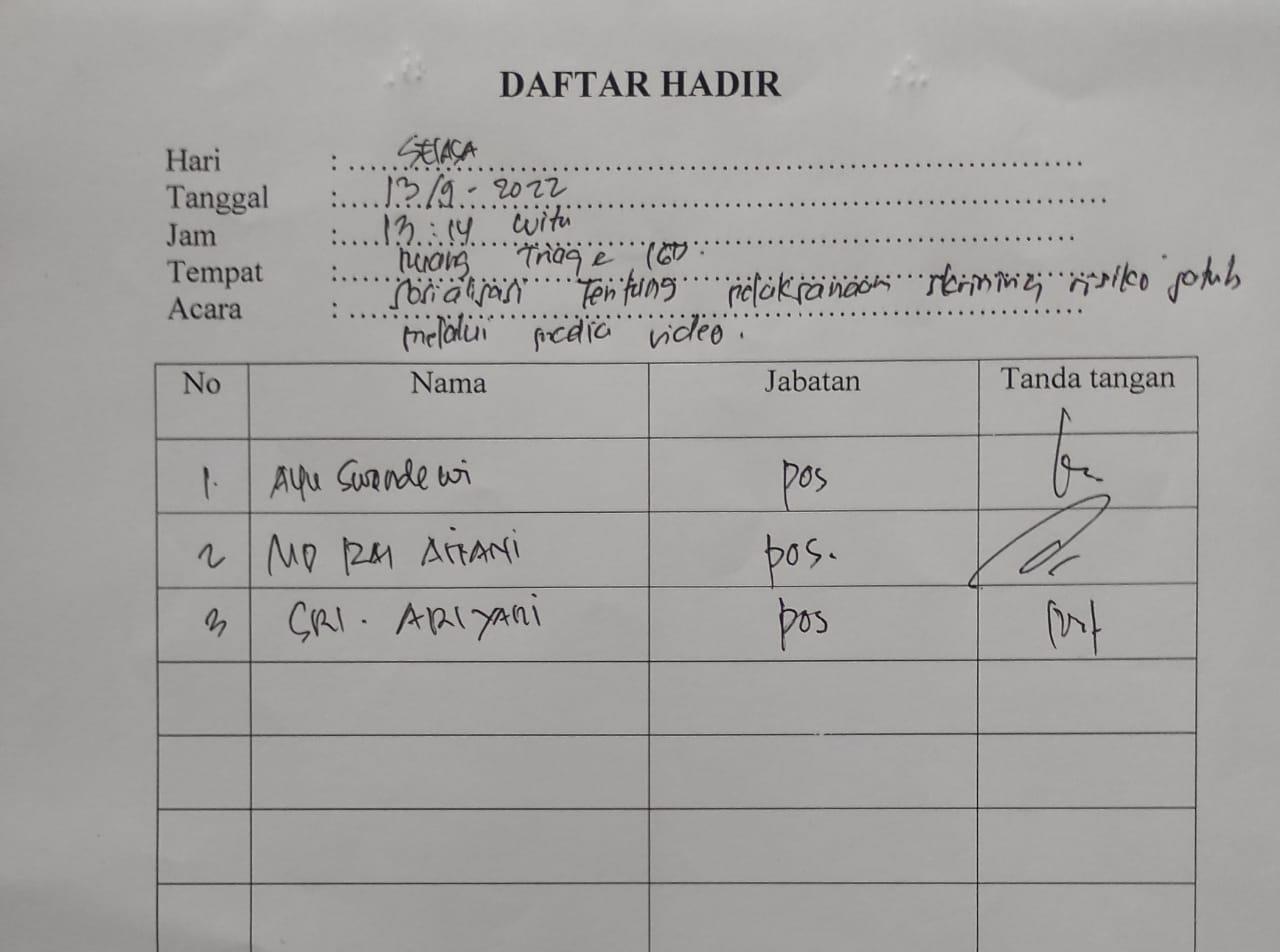 DAFTAR HADIR
Hari : SELASA
Tanggal : 13/9 - 2022
Jam : 13:14 wita
Tempat : ruang Triage IGD.
Acara : Sosialisasi Tentang pelaksanaan skrining risiko jatuh
melalui media video.
No Nama Jabatan Tanda tangan
1. Ayu Swandewi pos
2 MD RAI ARTANI pos.
3 SRI. ARIYANI pos